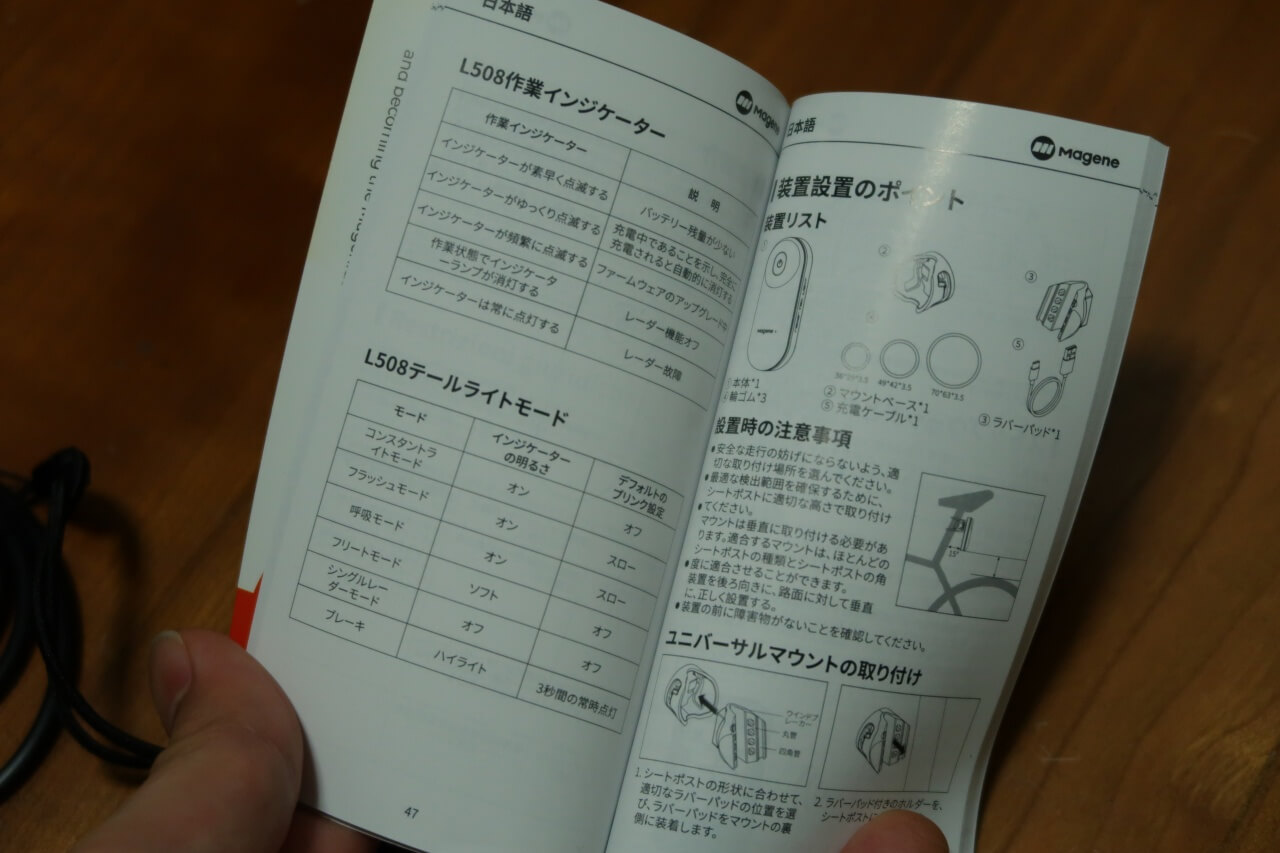 and becoming the
日本語
Magene
L508作業インジケーター
作業インジケーター 説 明
インジケーターが素早く点滅する バッテリー残量が少ない
インジケーターがゆっくり点滅する 充電中であることを示し、完全に
充電されると自動的に消灯する
インジケーターが頻繁に点滅する ファームウェアのアップグレード中
作業状態でインジケータ
ーランプが消灯する レーダー機能オフ
インジケーターは常に点灯する レーダー故障
L508テールライトモード
モード インジケーター
の明るさ デフォルトの
ブリンク設定
コンスタントラ
イトモード オン オフ
フラッシュモード オン スロー
呼吸モード オン スロー
フリートモード ソフト オフ
シングルレー
ダーモード オフ オフ
ブレーキ ハイライト 3秒間の常時点灯
47
日本語
Magene
装置設置のポイント
装置リスト
①
②
③
⑤
Magene
36*29*3.5
49*42*3.5
70*63*3.5
①本体*1
②マウントベース*1
③ラバーパッド*1
④輪ゴム*3
⑤充電ケーブル*1
設置時の注意事項
●安全な走行の妨げにならないよう、適
切な取り付け場所を選んでください。
●最適な検出範囲を確保するために、
シートポストに適切な高さで取り付け
●てください。
マウントは垂直に取り付ける必要があ
ります。適合するマウントは、ほとんどの
シートポストの種類とシートポストの角
●度に適合させることができます。
装置を後ろ向きに、路面に対して垂直
に、正しく設置する。
●装置の前に障害物がないことを確認してください。
15°
ユニバーサルマウントの取り付け
ウインドブ
レーカー
丸管
四角管
1.シートポストの形状に合わせて、
適切なラバーパッドの位置を選
び、ラバーパッドをマウントの裏
側に装着します。
2. ラバーパッド付きのホルダーを、
シートポストに